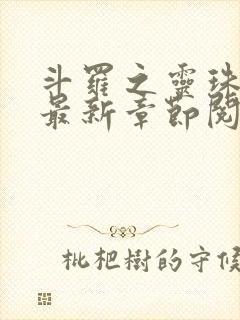 斗羅之靈珠
最新章節閱
枇杷樹的守候